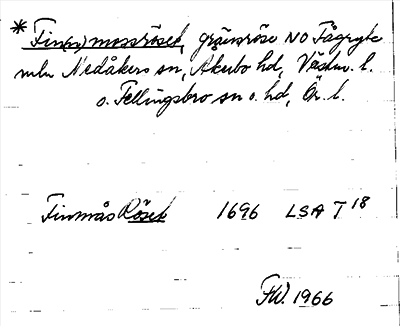 * Fin(n)mossröset, gränsröse NO Fågryte
mln Medåkers sn, Åkerbo hd, Västm. l.
o. Fellingsbro sn o. hd, Ör. l.
Finmås Röset 1696 LSA T 18
FW. 1966